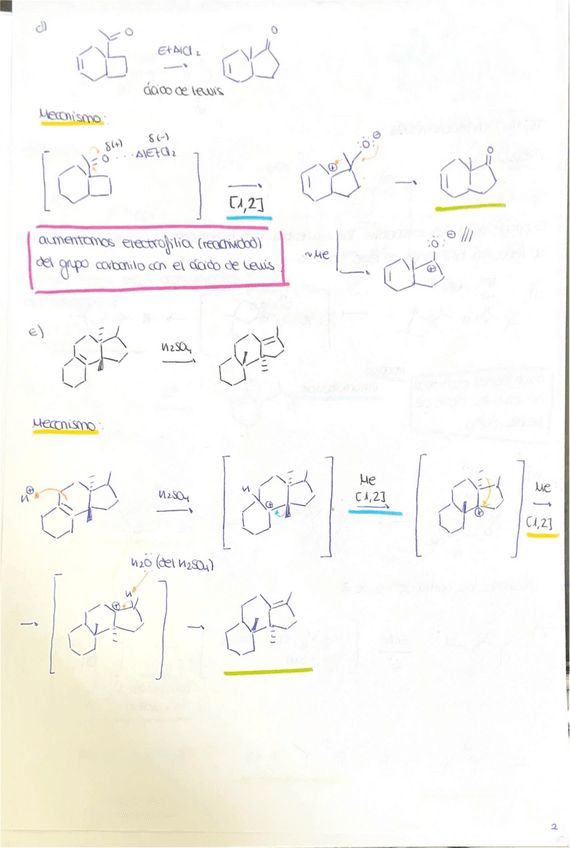 d)
O
EtAlCl₂
O
ácido de Lewis
Mecanismo:
δ(+) δ(-)
O ···· AlEtCl₂
[1,2]
:O: ⊖
⊕
O
aumentamos electrofilia (reactividad)
del grupo carbonilo con el ácido de Lewis
~Me
:O: ⊖ ///
⊕
e)
H₂SO₄
Mecanismo:
H⊕
H₂SO₄
H
⊕
Me
[1,2]
⊕
Me
[1,2]
H₂O (del H₂SO₄)
⊕ H
2